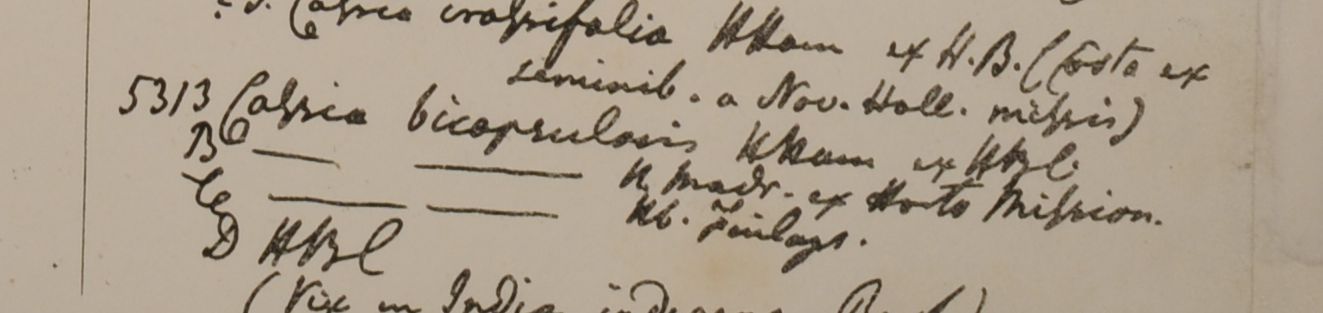 Cassia crassifolia HHam ex H.B. (Costa ex
seminib. a Nov. Holl. missis)
5313 Cassia bicapsularis HHam ex HBC.
B — — H. Madr. ex Horto Mission.
C — — Hb. Finlays.
D HBC
(Vix in India indigena Roxb)